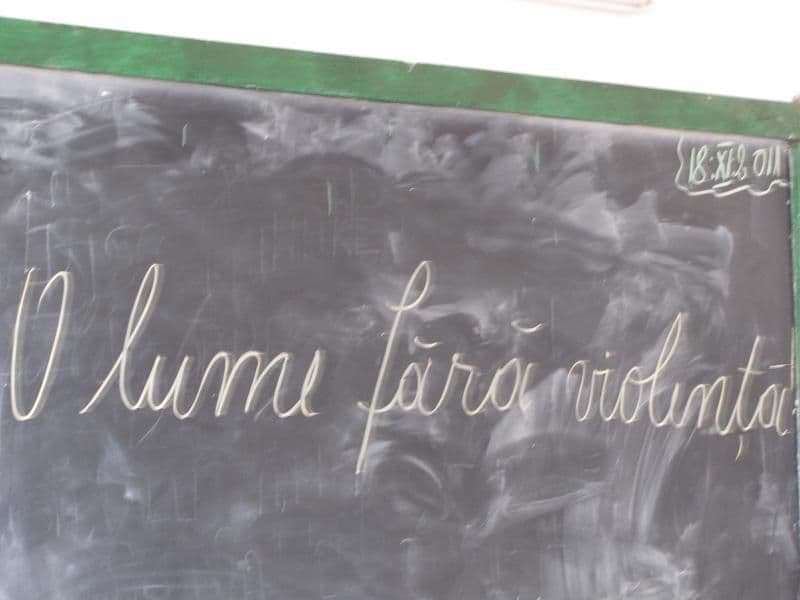 18.XI.2011
O lume fără violență